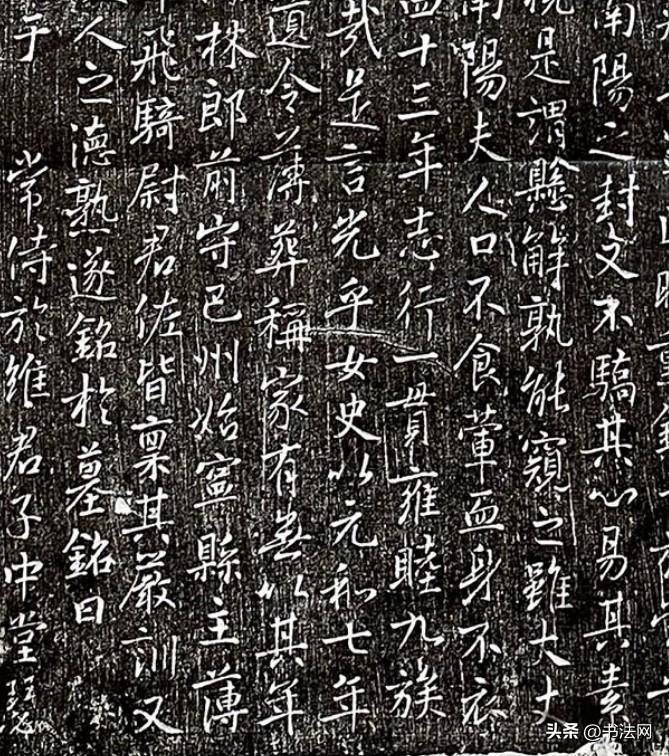 南陽之封文不驕其心易其素
是謂懸解孰能窺之雖大丈
南陽夫人口不食葷血身不衣
四十三年志行一貫雍睦九族
哉是言光乎女史以元和七年
遺令薄葬稱家有無以其年
林郎前守巴州始寧縣主薄
飛騎尉君佐皆稟其嚴訓又
人之德熟遂銘於墓銘曰
于 常侍於維君子中堂
头条 @书法网